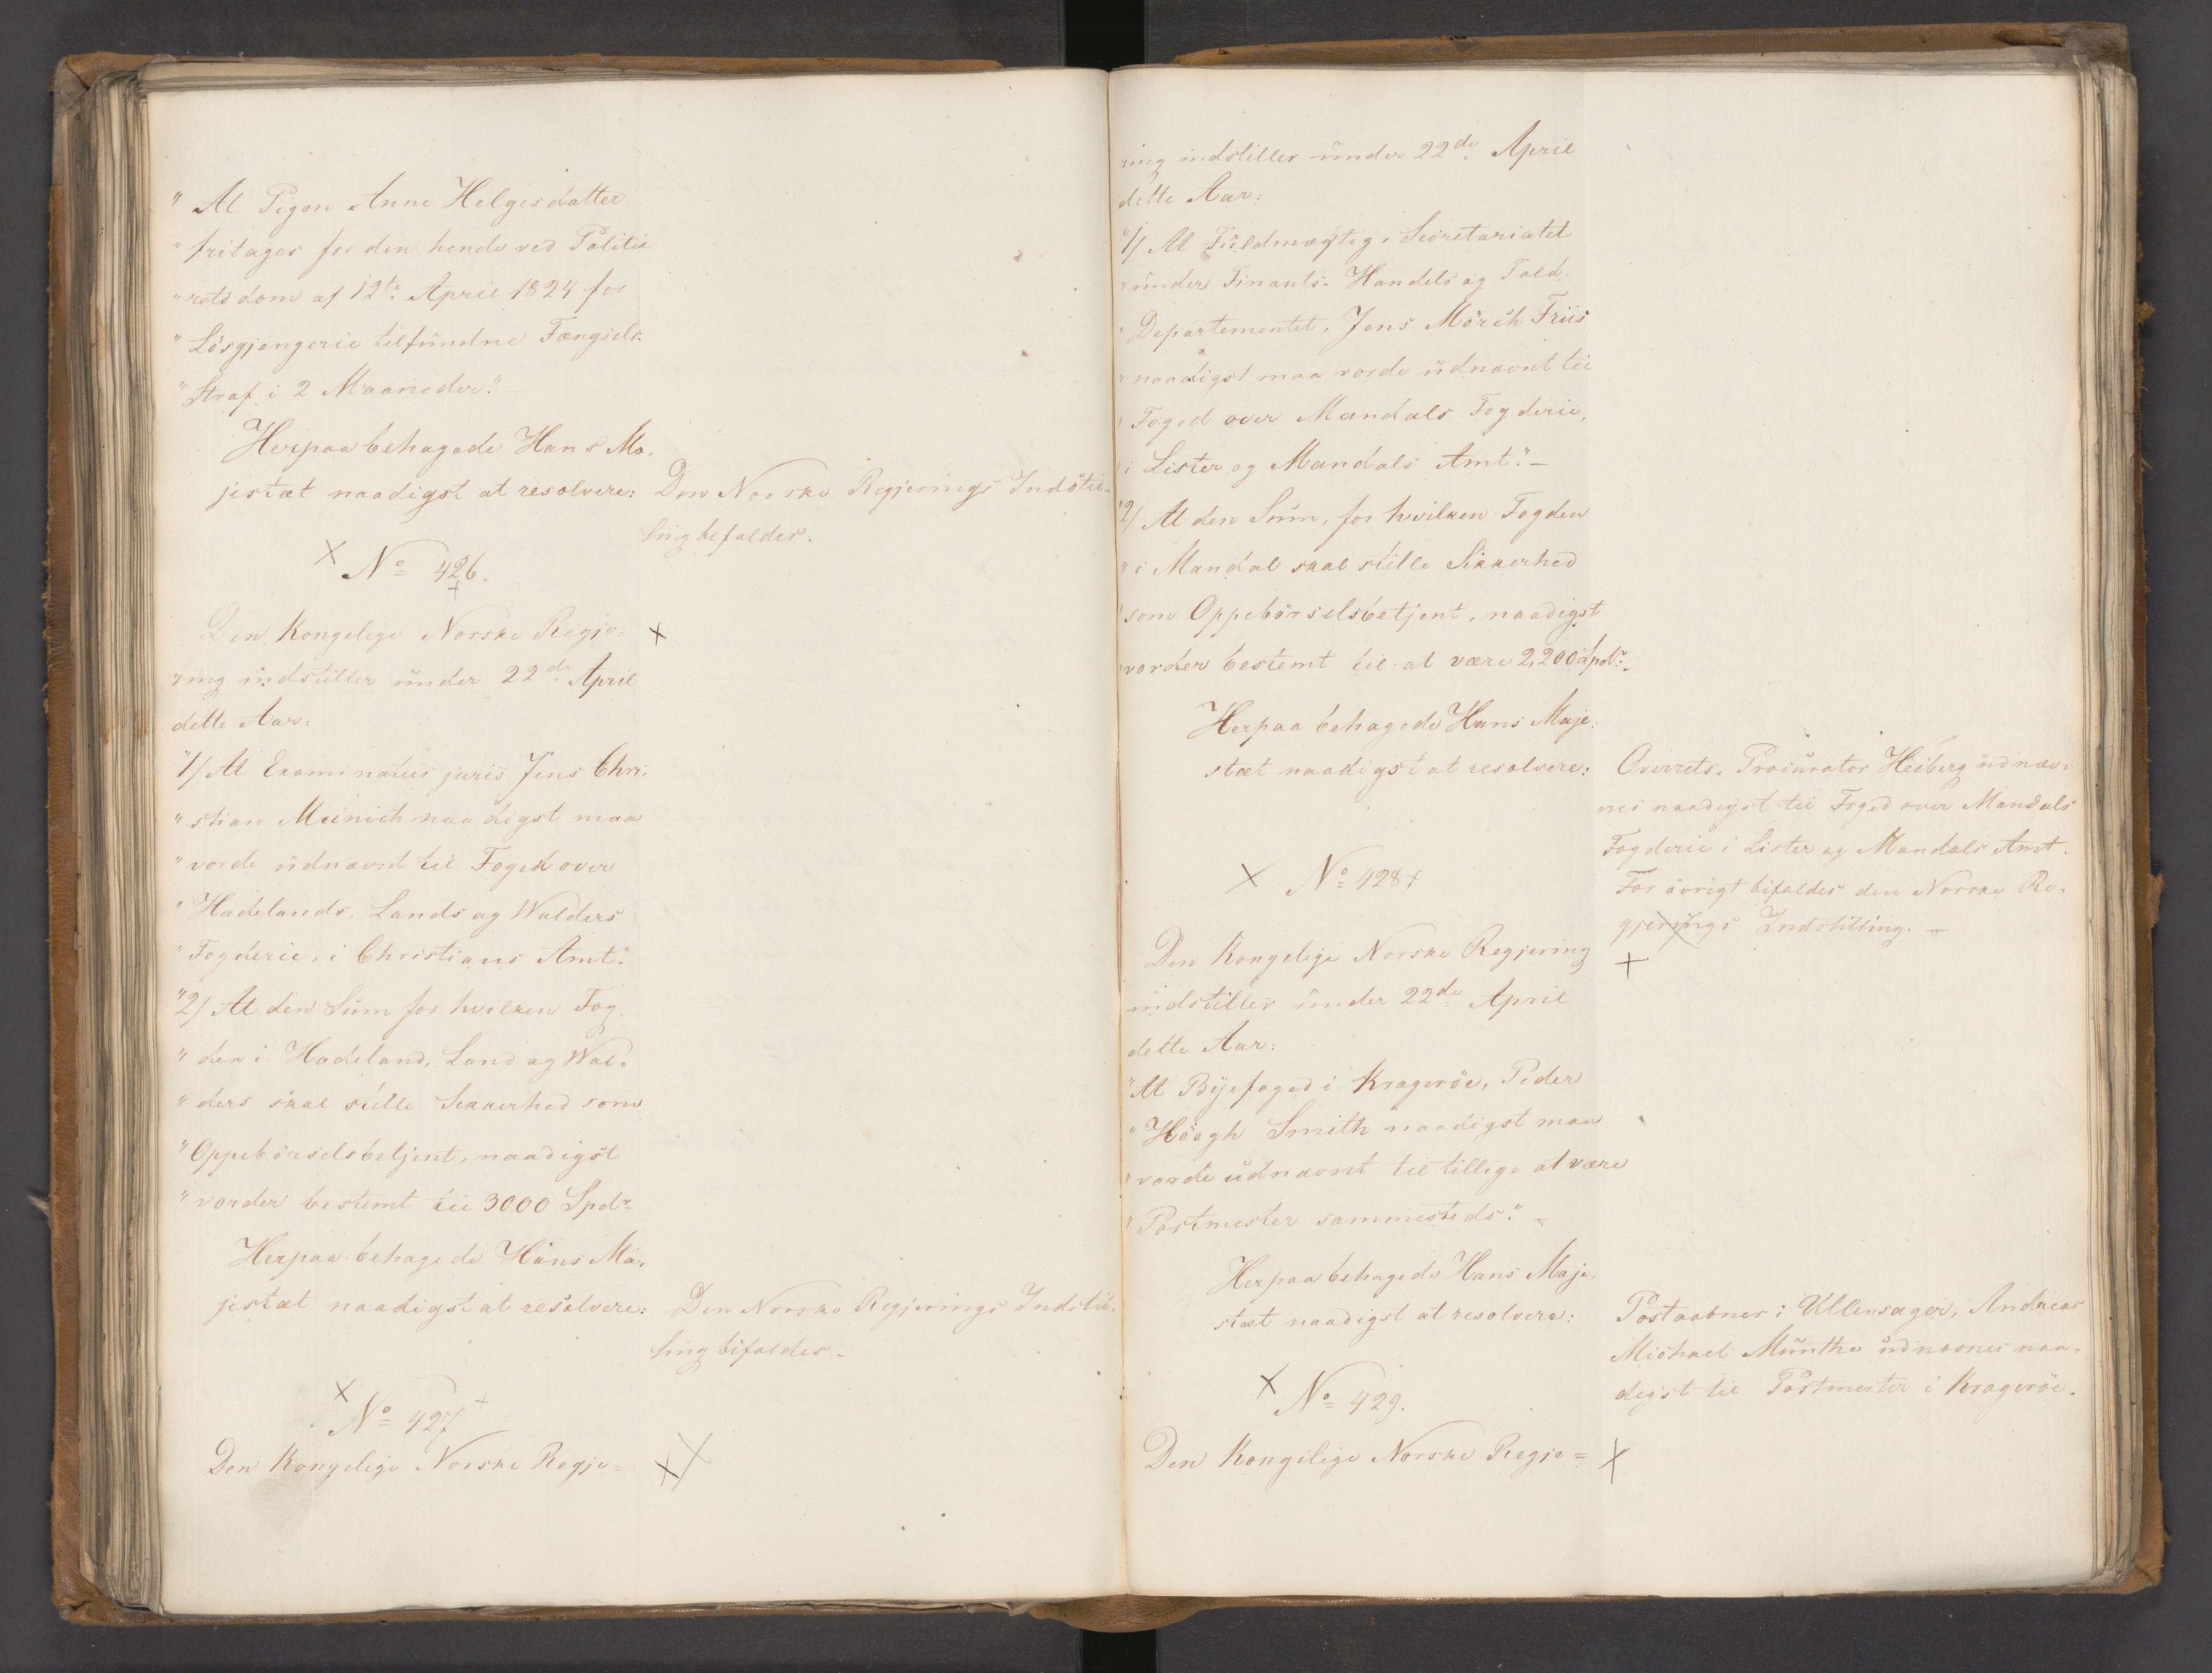 " At Pigen Anne Helgesdatter
" fritages for den hende ved Politie
" rets dom af 12te April 1824 for
" Lösgjengerie tilfundne Fængsels-
" Straf i 2 Maaneder."
Herpaa behagede Hans Ma-
jestæt naadigst at resolvere:
Den Norske Regjerings Indstil-
ling bifaldes.
No 426.
Den Kongelige Norske Regje-
ring indstiller under 22de April
dette Aar:
"1/ At Examinatus juris Jens Chri-
" stian Münich naadigst maa
" vorde udnævnt til Foged over
" Hadelands, Lands og Walders
" Fogderie, i Christians Amt."
"2/ At den Sum for hvilken Fog-
" den i Hadeland, Land og Wal-
" ders skal stille Sikkerhed som
" Oppebörselsbetjent, naadigst
" vorder bestemt til 3000 Spdr
Herpaa behagede Hans Ma-
jestæt naadigst at resolvere:
Den Norske Regjerings Indstil-
ling bifaldes.
No 427
Den Kongelige Norske Regje=
ring indstiller under 22de April
dette Aar:
"1/ At Fuldmægtig i Secretariatet
" under Finants- Handels og Told-
" Departementet, Jens Mörch Friis
" naadigst maa vorde udnævnt til
" Foged over Mandals Fogderie,
" i Lister og Mandals Amt."
"2/ At den Sum, for hvilken Fogden
" i Mandal skal stille Sikkerhed
" som Oppebörselsbetjent, naadigst
" vorder bestemt til at være 2,200 Spdr
Herpaa behagede Hans Maje-
stæt naadigst at resolvere:
Overrets-Procurator Heiberg udnæv-
nes naadigst til Foged over Mandals
Fogderie i Lister og Mandals Amt.
For övrigt bifaldes den Norske Re-
gjerings Indstilling.
No 428
Den Kongelige Norske Regjering
indstiller under 22de April
dette Aar:
"At Byefoged i Krageröe, Peder
" Höegh Smith naadigst maa
" vorde udnævnt til tillige at være
" Postmester sammesteds."
Herpaa behagede Hans Maje-
stæt naadigst at resolvere:
Postaabner i Ullensager, Andreas
Michael Münthe udnævnes naa-
digst til Postmester i Krageröe.
No 429.
Den Kongelige Norske Regje=